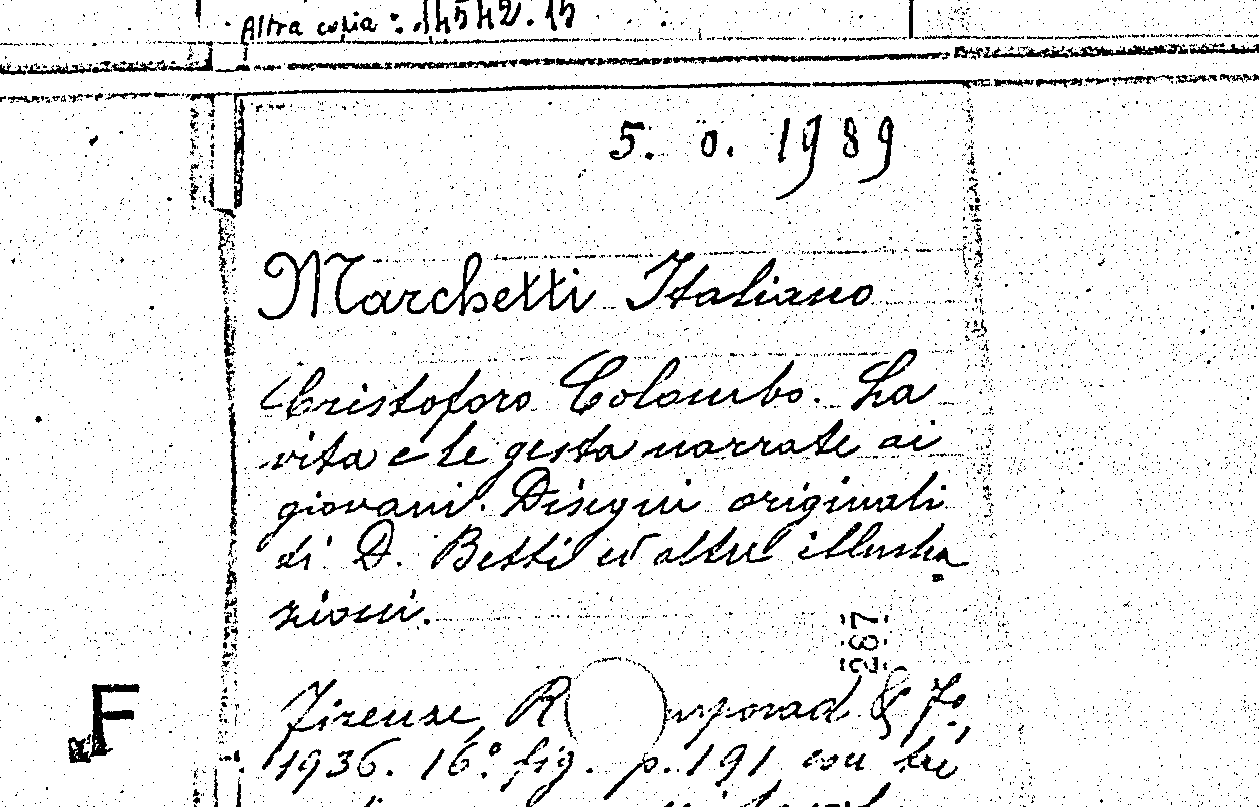 Altra copia: 14542.15
5. o. 1989
Marchetti Italiano
Cristoforo Colombo. La
vita e le gesta narrate ai
giovani. Disegni originali
di D. Betti ed altre illustra
zioni.
287
Firenze, R mporad & Fo,
F
1936. 16° fig. p. 191 con tre